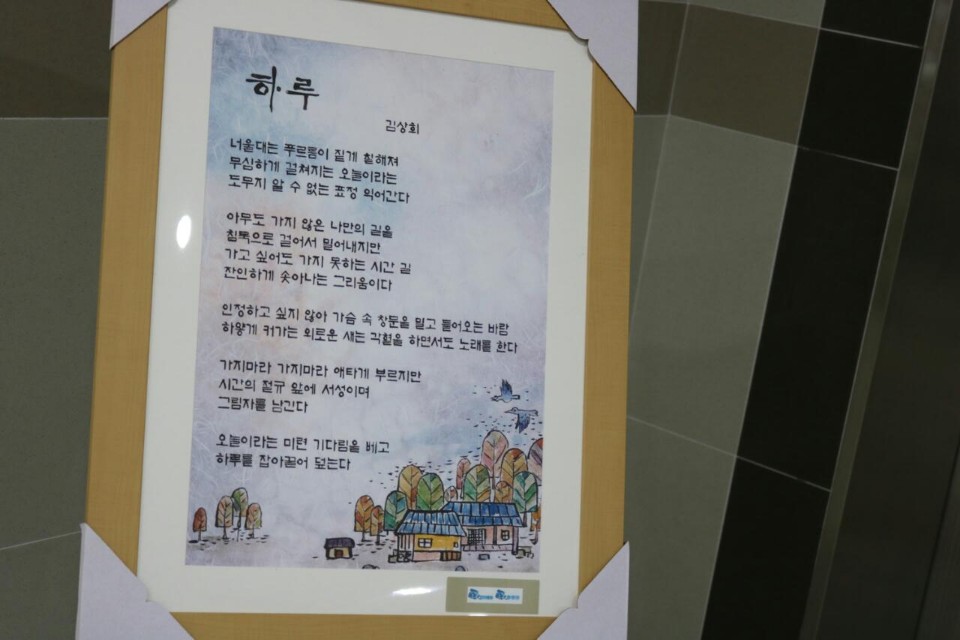 하루
김상회
너울대는 푸르름이 짙게 칠해져
무심하게 걸쳐지는 오늘이라는
도무지 알 수 없는 표정 익어간다
아무도 가지 않은 나만의 길을
침묵으로 걸어서 밀어내지만
가고 싶어도 가지 못하는 시간 길
잔인하게 솟아나는 그리움이다
인정하고 싶지 않아 가슴 속 창문을 밀고 들어오는 바람
하얗게 커가는 외로운 새는 각혈을 하면서도 노래를 한다
가지마라 가지마라 애타게 부르지만
시간의 절규 앞에 서성이며
그림자를 남긴다
오늘이라는 미련 기다림을 베고
하루를 잡아끌어 덮는다